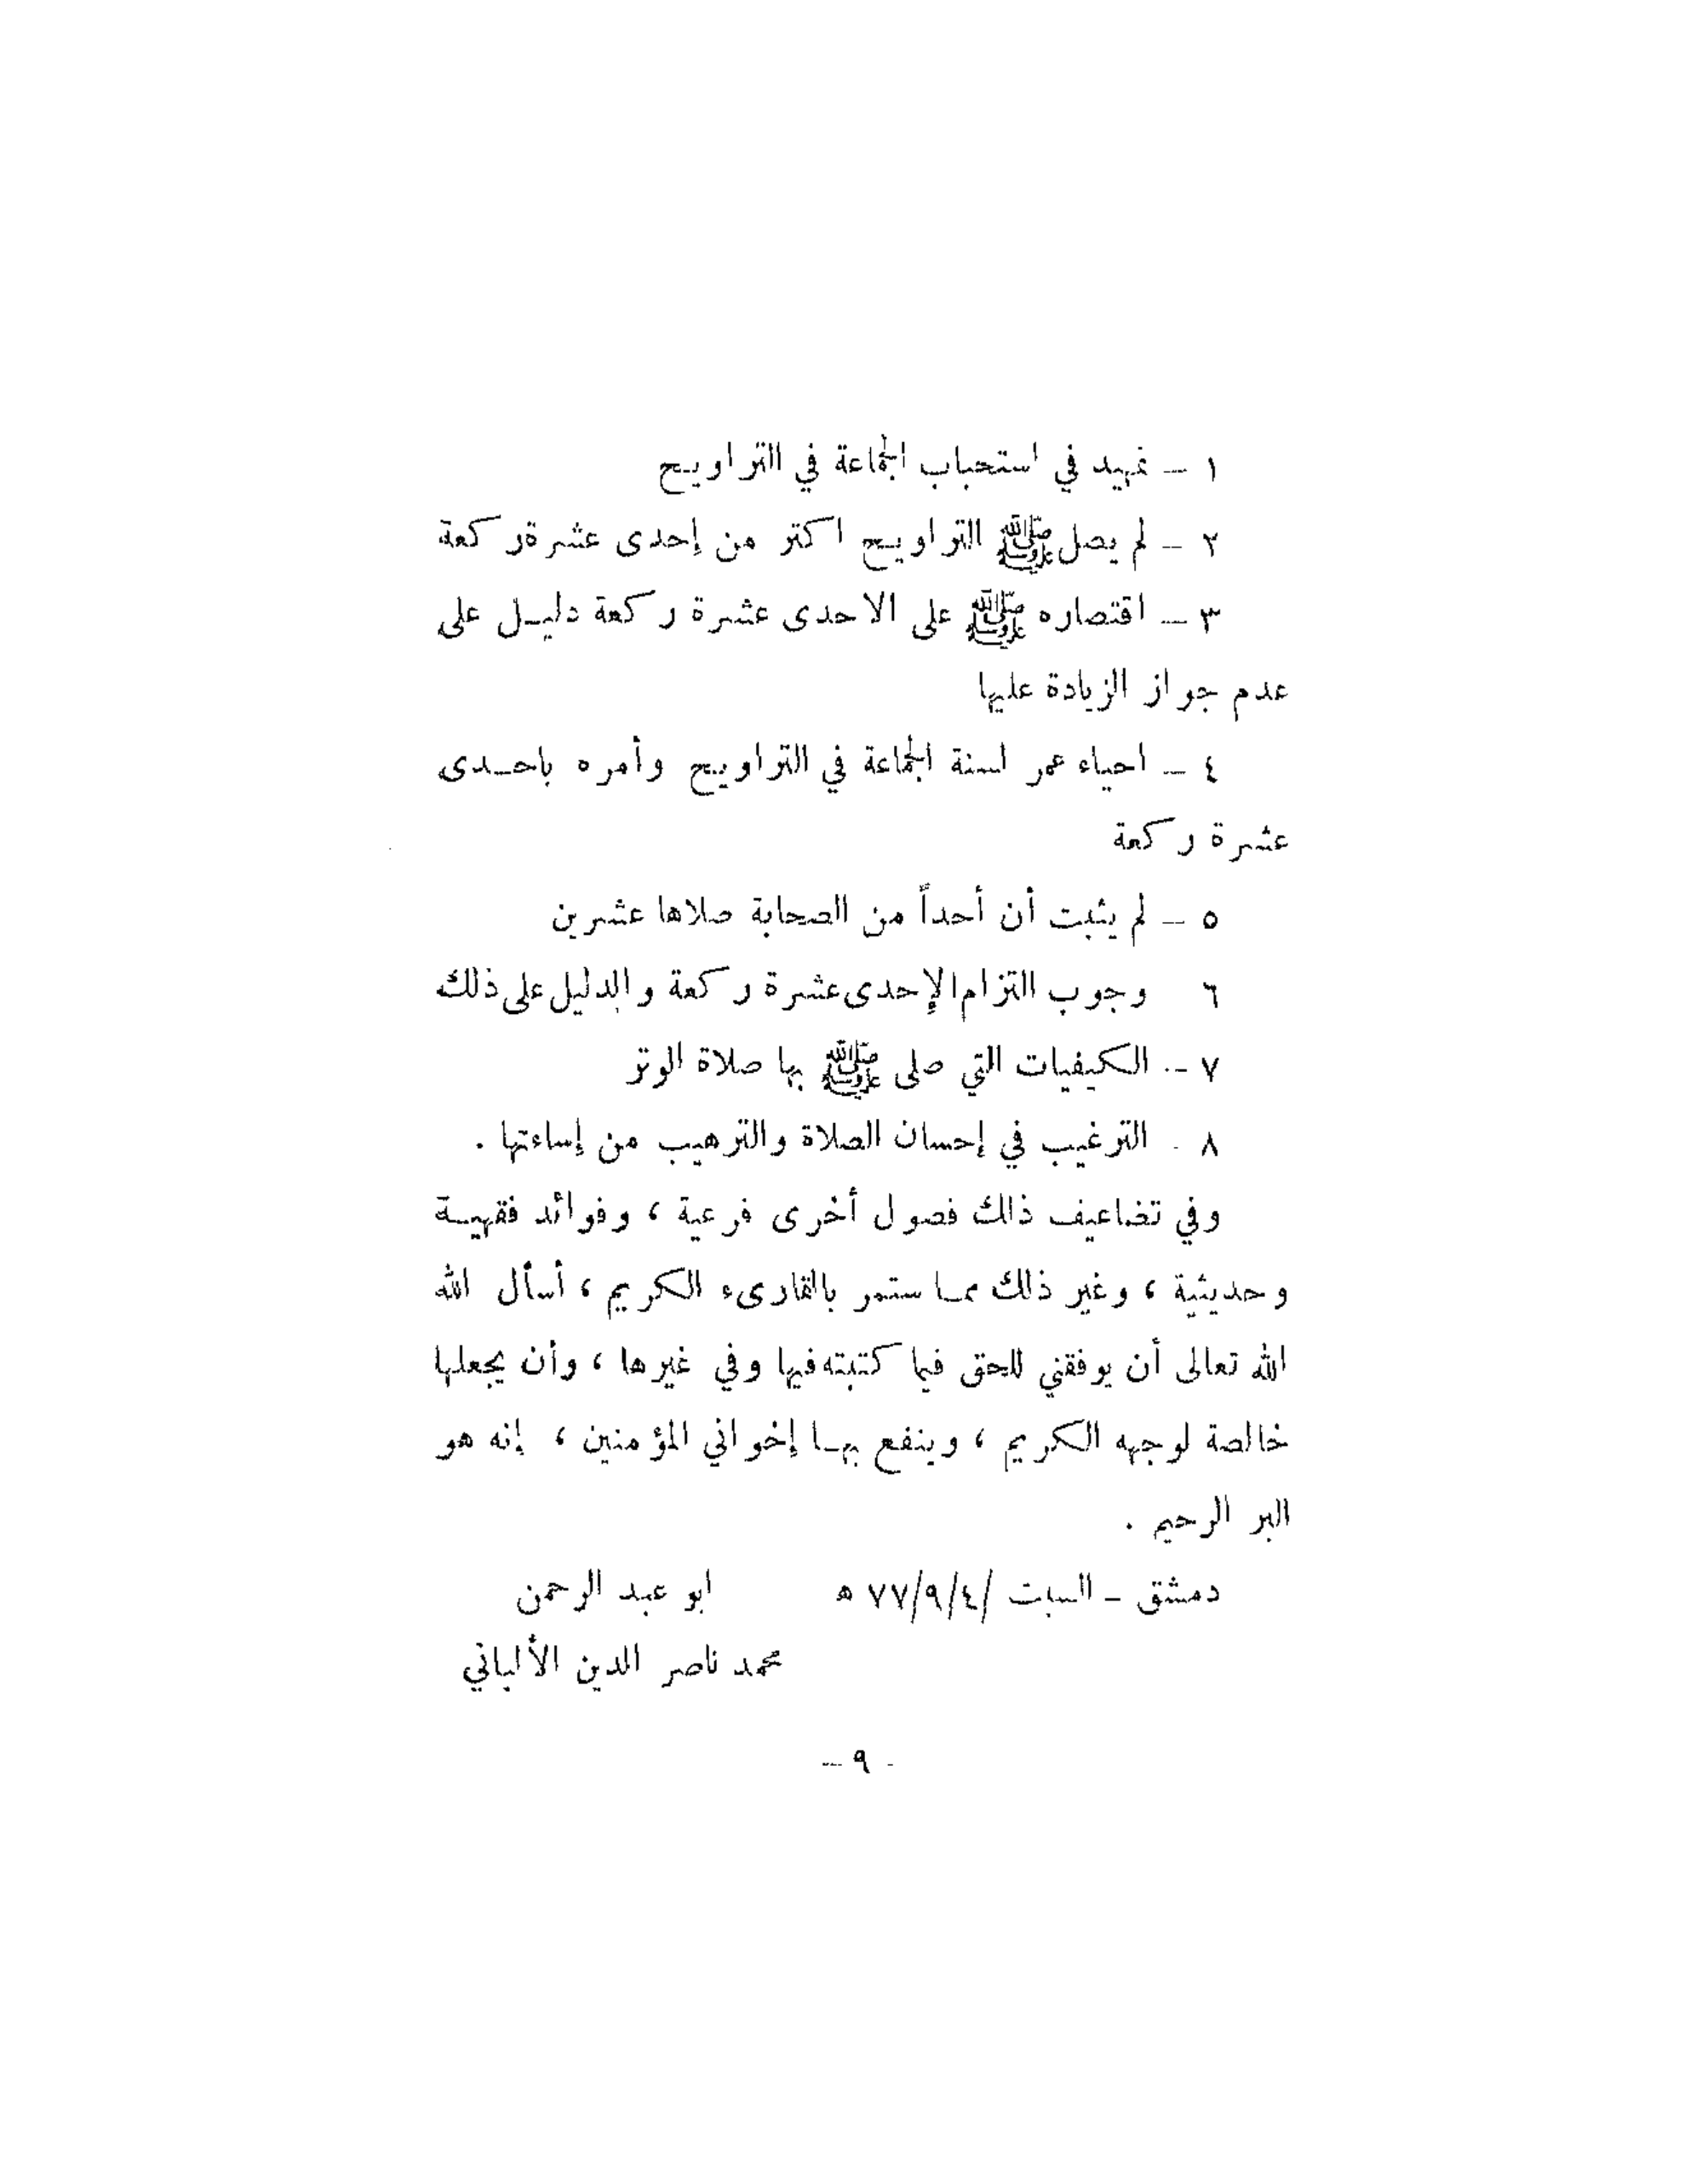 ١ – تمهيد في استحباب الجماعة في التراويح
٢ – لم يصل ﷺ التراويح اكثر من إحدى عشرة ركعة
٣ – اقتصاره ﷺ على الاحدى عشرة ركعة دليل على
عدم جواز الزيادة عليها
٤ – احياء عمر لسنة الجماعة في التراويح وأمره باحدى
عشرة ركعة
٥ – لم يثبت أن أحداً من الصحابة صلاها عشرين
٦ وجوب التزام الإحدى عشرة ركعة والدليل على ذلك
٧ – الكيفيات التي صلى ﷺ بها صلاة الوتر
٨ - الترغيب في إحسان الصلاة والترهيب من إساءتها .
وفي تضاعيف ذلك فصول أخرى فرعية ، وفوائد فقهية
وحديثية ، وغير ذلك مما ستمر بالقارىء الكريم ، أسأل الله
الله تعالى أن يوفقني للحق فيما كتبته فيها وفي غيرها ، وأن يجعلها
خالصة لوجهه الكريم ، وينفع بها إخواني المؤمنين ، إنه هو
البر الرحيم .
دمشق – السبت /٧٧/٩/٤ ه ابو عبد الرحمن
محمد ناصر الدين الألباني
- ٩ –